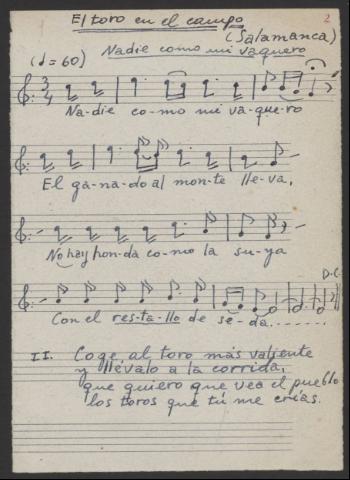 El toro en el campo
2
(Salamanca)
Nadie como mi vaquero
(♩=60)
3/4
Na-die co-mo mi va-que-ro
El ga-na-do al mon-te lle-va,
No hay hon-da co-mo la su-ya
D.C.
Con el res-ta-llo de se-da.......
II. Coge al toro más valiente
y llévalo a la corrida,
que quiero que vea el pueblo
los toros que tú me crías.